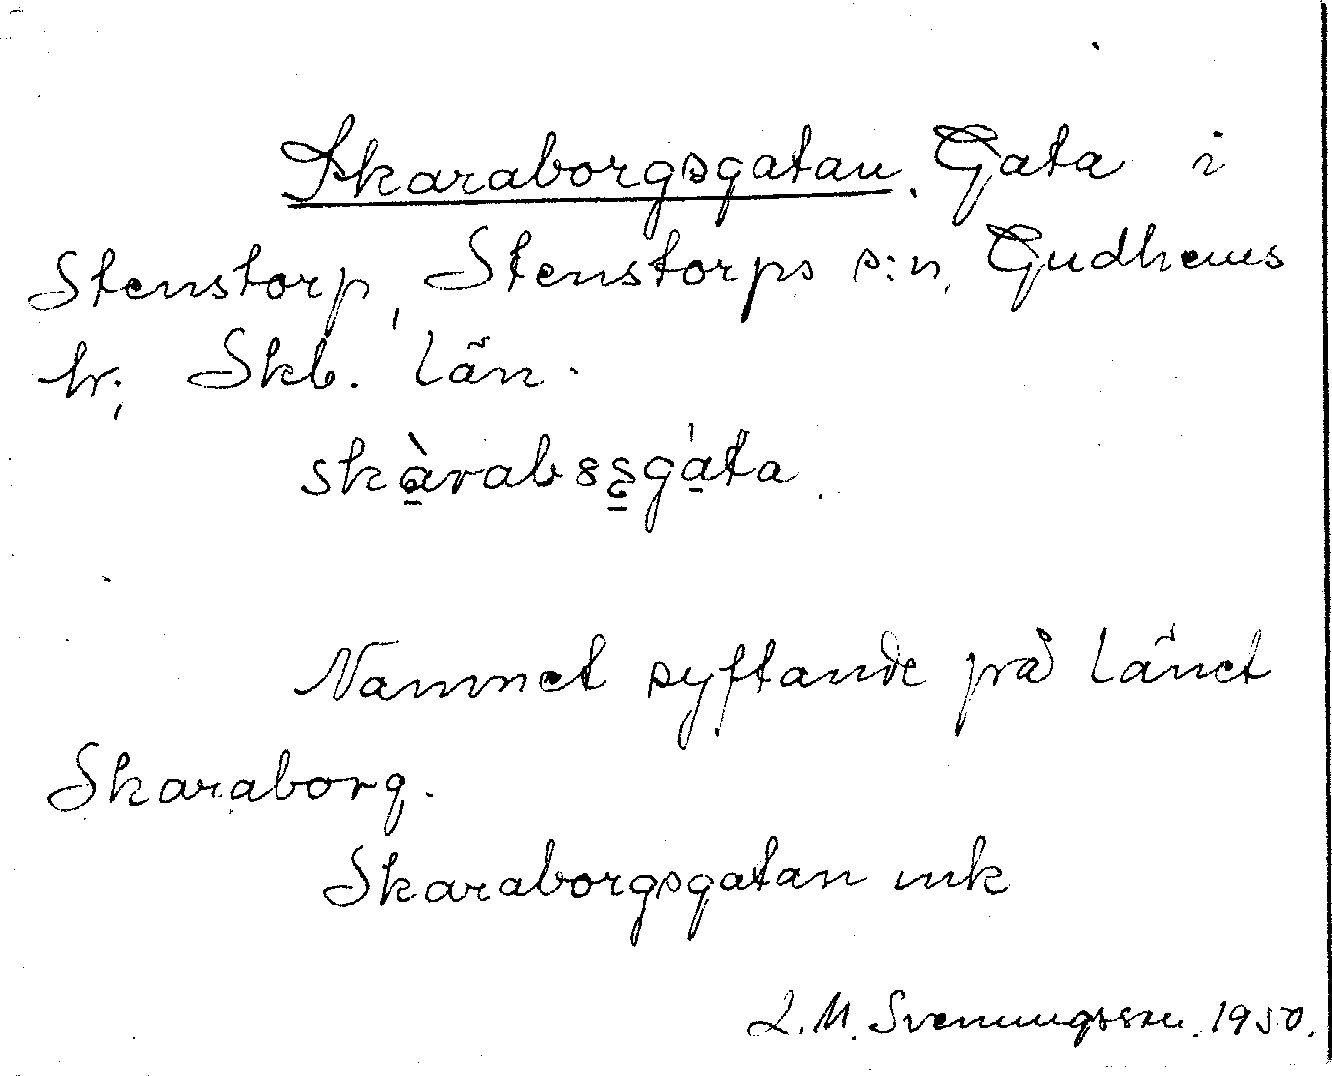 Skaraborgsgatan. Gata i
Stenstorp, Stenstorps s:n, Gudhems
hr; Skb. län.
Namnet syftande på länet
Skaraborg.
Skaraborgsgatan mk
L. M. Svenungsson. 1950.